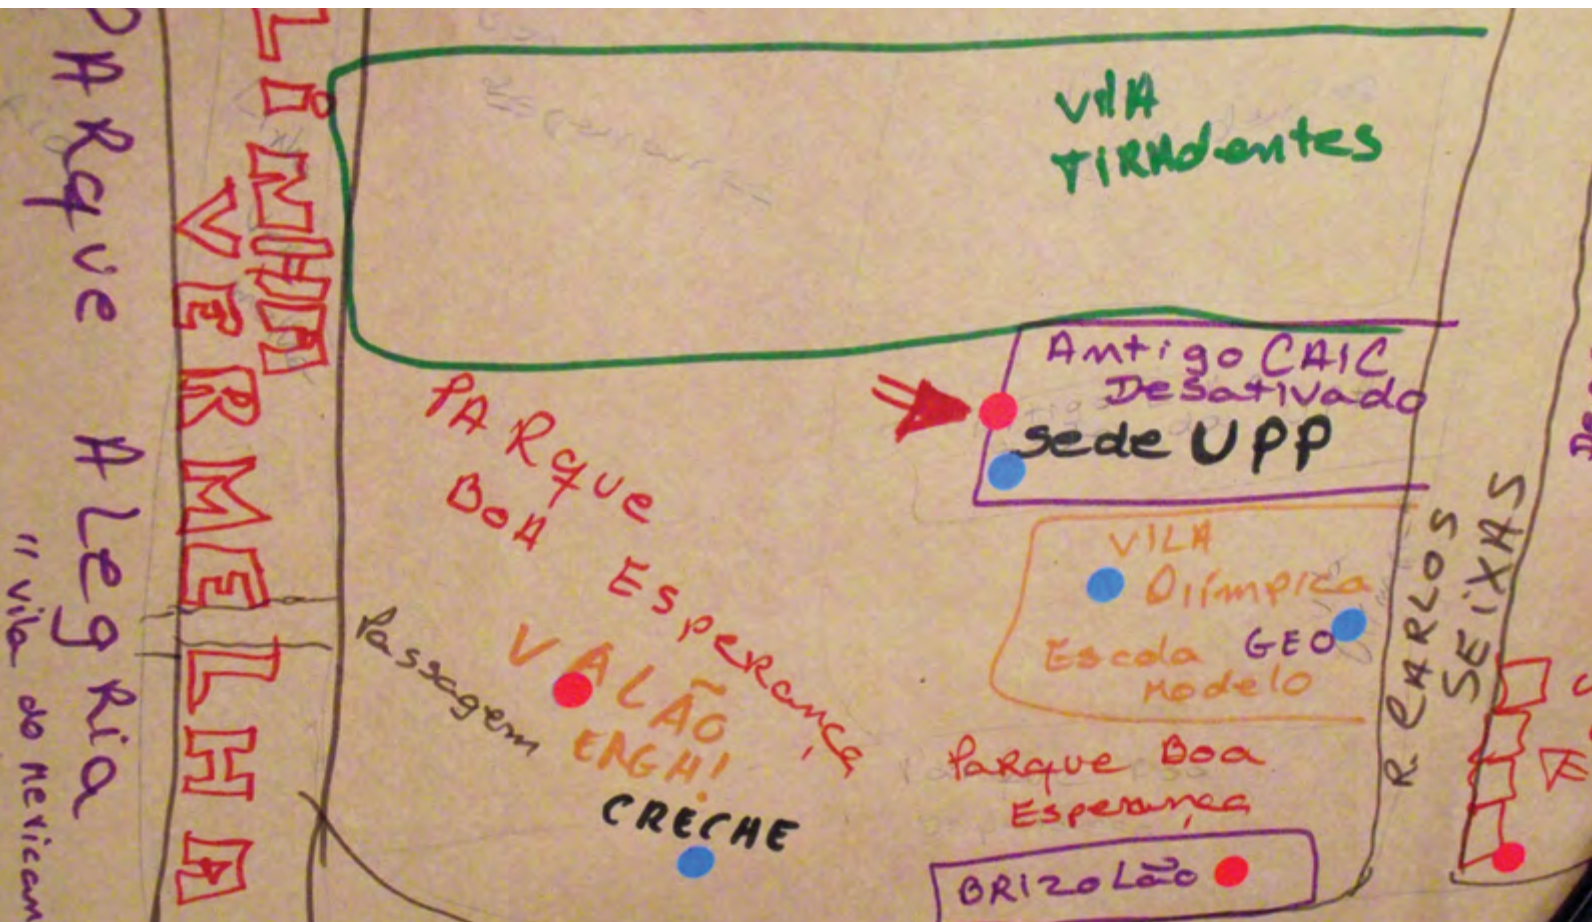 PARque ALegRia
"Vila do Mexican
LiNHA
VERMELHA
VilA
TIRAdentes
Antigo CAIC
Desativado
sede UPP
PARque
BoA Esperança
VILA
Olímpica
Escola GEO
Modelo
Passagem
VALÃO
ERGH!
CRECHE
Parque Boa
Esperança
BRIZoLão
R. CARLOS
SEiXAS